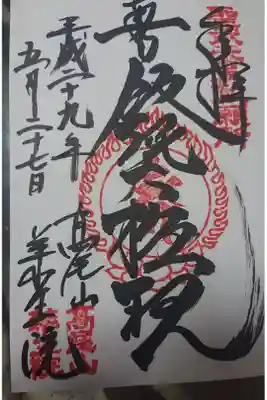 奉拝
飯縄大権現
平成二十九年
五月二十七日
高尾山
薬王院